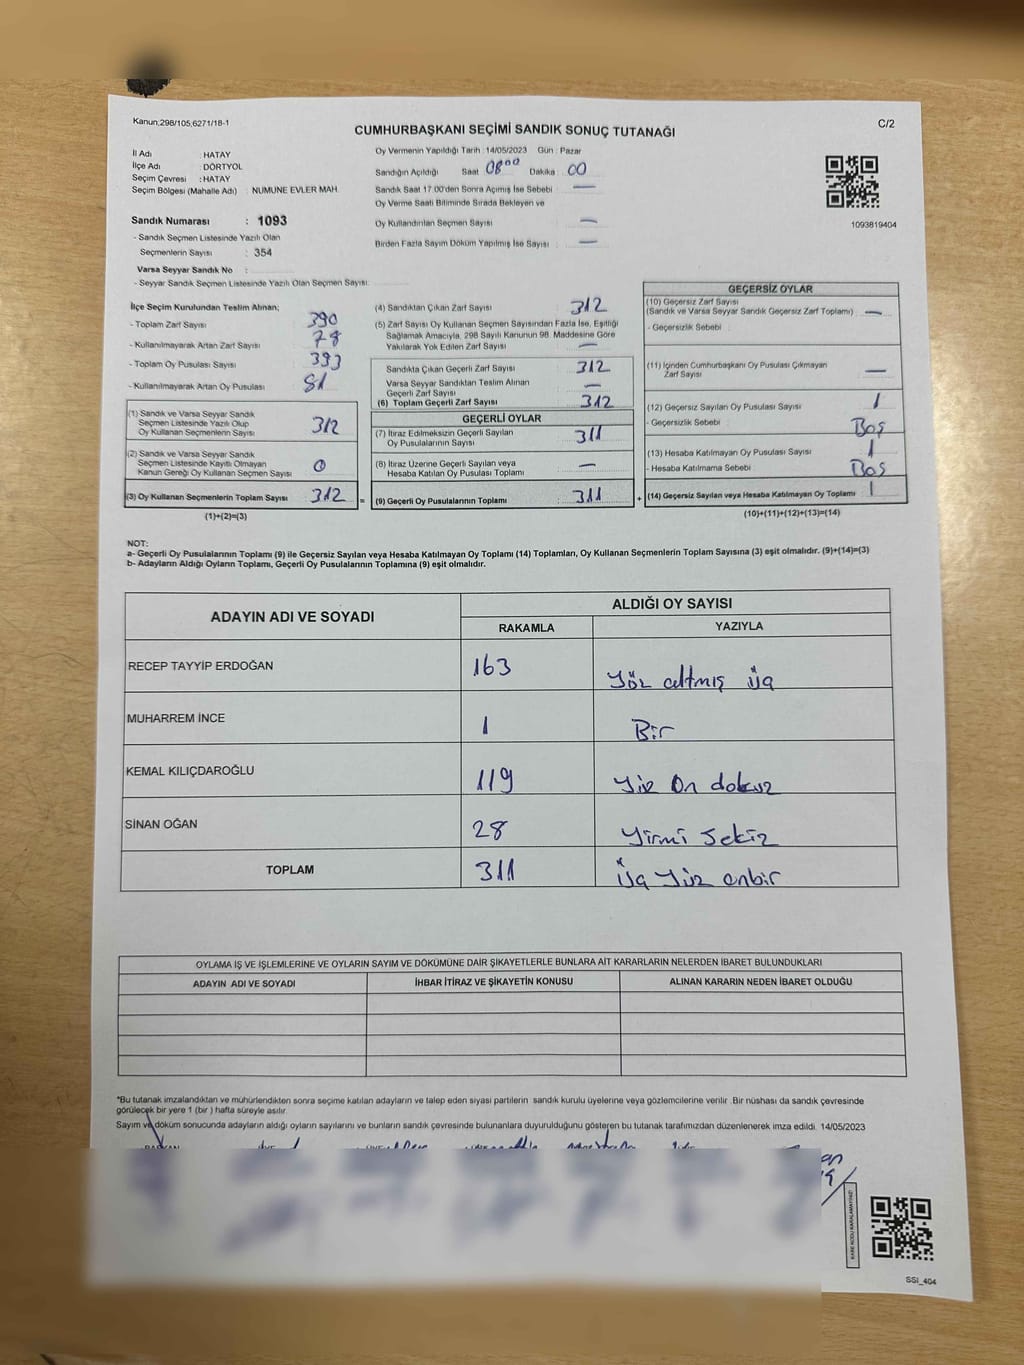 Kanun;298/105,6271/18-1
CUMHURBAŞKANI SEÇİMİ SANDIK SONUÇ TUTANAĞI
C/2
İl Adı : HATAY
İlçe Adı : DÖRTYOL
Seçim Çevresi : HATAY
Seçim Bölgesi (Mahalle Adı) : NUMUNE EVLER MAH.
Sandık Numarası : 1093
- Sandık Seçmen Listesinde Yazılı Olan
Seçmenlerin Sayısı : 354
Varsa Seyyar Sandık No :
- Seyyar Sandık Seçmen Listesinde Yazılı Olan Seçmen Sayısı:
Oy Vermenin Yapıldığı Tarih : 14/05/2023 Gün : Pazar
Sandığın Açıldığı Saat 08 00 Dakika 00
Sandık Saat 17.00'den Sonra Açılmış İse Sebebi —
Oy Verme Saati Bitiminde Sırada Bekleyen ve
Oy Kullandırılan Seçmen Sayısı —
Birden Fazla Sayım Döküm Yapılmış İse Sayısı —
1093819404
İlçe Seçim Kurulundan Teslim Alınan;
- Toplam Zarf Sayısı 390
- Kullanılmayarak Artan Zarf Sayısı 78
- Toplam Oy Pusulası Sayısı 393
- Kullanılmayarak Artan Oy Pusulası 81
(1) Sandık ve Varsa Seyyar Sandık
Seçmen Listesinde Yazılı Olup
Oy Kullanan Seçmenlerin Sayısı 312
(2) Sandık ve Varsa Seyyar Sandık
Seçmen Listesinde Kayıtlı Olmayan
Kanun Gereği Oy Kullanan Seçmen Sayısı 0
(3) Oy Kullanan Seçmenlerin Toplam Sayısı 312
(1)+(2)=(3)
=
(4) Sandıktan Çıkan Zarf Sayısı 312
(5) Zarf Sayısı Oy Kullanan Seçmen Sayısından Fazla İse, Eşitliği
Sağlamak Amacıyla, 298 Sayılı Kanunun 98. Maddesine Göre
Yakılarak Yok Edilen Zarf Sayısı —
Sandıkta Çıkan Geçerli Zarf Sayısı 312
Varsa Seyyar Sandıktan Teslim Alınan
Geçerli Zarf Sayısı —
(6) Toplam Geçerli Zarf Sayısı 312
GEÇERLİ OYLAR
(7) İtiraz Edilmeksizin Geçerli Sayılan
Oy Pusulalarının Sayısı 311
(8) İtiraz Üzerine Geçerli Sayılan veya
Hesaba Katılan Oy Pusulası Toplamı —
(9) Geçerli Oy Pusulalarının Toplamı 311
+
GEÇERSİZ OYLAR
(10) Geçersiz Zarf Sayısı
(Sandık ve Varsa Seyyar Sandık Geçersiz Zarf Toplamı) —
- Geçersizlik Sebebi
(11) İçinden Cumhurbaşkanı Oy Pusulası Çıkmayan
Zarf Sayısı —
(12) Geçersiz Sayılan Oy Pusulası Sayısı 1
- Geçersizlik Sebebi Boş
(13) Hesaba Katılmayan Oy Pusulası Sayısı 1
- Hesaba Katılmama Sebebi Boş
(14) Geçersiz Sayılan veya Hesaba Katılmayan Oy Toplamı 1
(10)+(11)+(12)+(13)=(14)
NOT:
a- Geçerli Oy Pusulalarının Toplamı (9) ile Geçersiz Sayılan veya Hesaba Katılmayan Oy Toplamı (14) Toplamları, Oy Kullanan Seçmenlerin Toplam Sayısına (3) eşit olmalıdır. (9)+(14)=(3)
b- Adayların Aldığı Oyların Toplamı, Geçerli Oy Pusulalarının Toplamına (9) eşit olmalıdır.
ADAYIN ADI VE SOYADI ALDIĞI OY SAYISI
RAKAMLA YAZIYLA
RECEP TAYYİP ERDOĞAN 163 Yüz altmış üç
MUHARREM İNCE 1 Bir
KEMAL KILIÇDAROĞLU 119 Yüz On dokuz
SİNAN OĞAN 28 Yirmi Sekiz
TOPLAM 311 üç yüz onbir
OYLAMA İŞ VE İŞLEMLERİNE VE OYLARIN SAYIM VE DÖKÜMÜNE DAİR ŞİKAYETLERLE BUNLARA AİT KARARLARIN NELERDEN İBARET BULUNDUKLARI
ADAYIN ADI VE SOYADI İHBAR İTİRAZ VE ŞİKAYETİN KONUSU ALINAN KARARIN NEDEN İBARET OLDUĞU
*Bu tutanak imzalandıktan ve mühürlendikten sonra seçime katılan adayların ve talep eden siyasi partilerin sandık kurulu üyelerine veya gözlemcilerine verilir .Bir nüshası da sandık çevresinde
görülecek bir yere 1 (bir ) hafta süreyle asılır.
Sayım ve döküm sonucunda adayların aldığı oyların sayılarını ve bunların sandık çevresinde bulunanlara duyurulduğunu gösteren bu tutanak tarafımızdan düzenlenerek imza edildi. 14/05/2023
KARE KODU KARALAMAYINIZ!
SSI_404